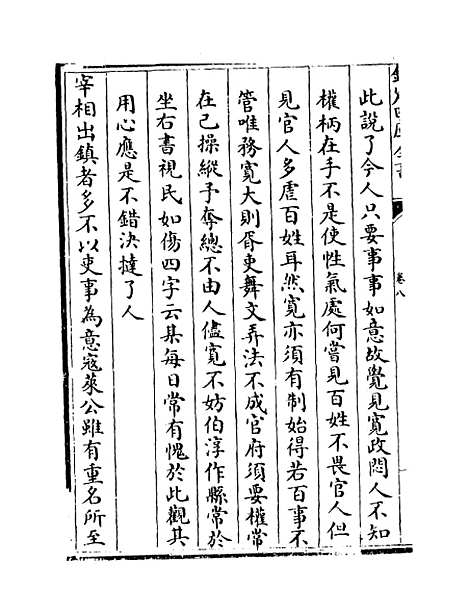 此說了今人只要事事如意故覺見寛政悶人不知
權柄在手不是使性氣處何嘗見百姓不畏官人但
見官人多虐百姓耳然寛亦須有制始得若百事不
管唯務寛大則胥吏舞文弄法不成官府須要權常
在己操縱予奪總不由人儘寛不妨伯淳作縣常於
坐右書視民如傷四字云某每日常有愧於此觀其
用心應是不錯決撻了人
宰相出鎮者多不以吏事為意寇萊公雖有重名所至
卷八